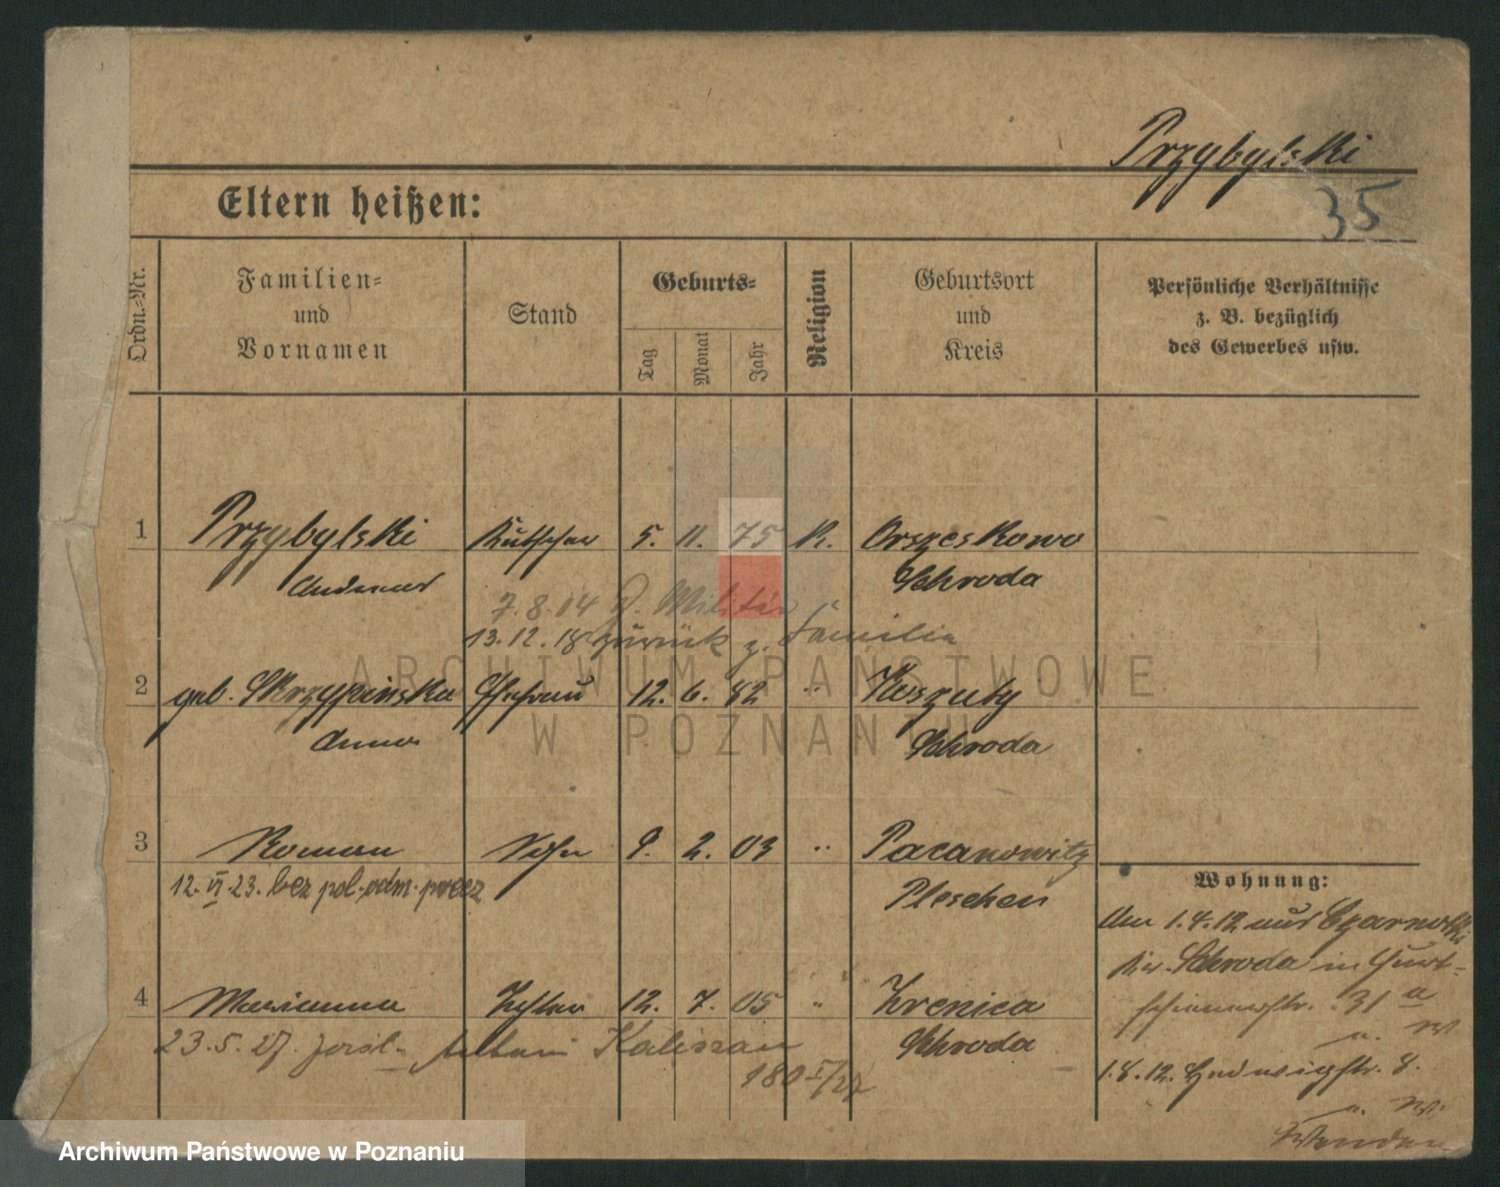 Przybylski
35
Eltern heißen:
Ordn.-Nr.
Familien-
und
Vornamen
Stand
Geburts-
Tag
Monat
Jahr
Religion
Geburtsort
und
Kreis
Persönliche Verhältnisse
z. B. bezüglich
des Gewerbes usw.
1 Przybylski Kutscher 5. 11. 75 K. Orszeskowo
Andreas Schroda
7.8.14 z. Militär
13.12.18 zurück z. Familie
2 geb. Skrzypinska Ehefrau 12. 6. 82 " Koszuty
Anna Schroda
3 Roman Sohn 9. 2. 03 " Pacanowitz
12.VI.23. bez pol. odm. przez Pleschen
4 Marianna Tochter 12. 7. 05 " Zrenica
23.5.27. Kaliszan Schroda
180
Wohnung:
Am 1.4.12 aus Czarnotki
Kr. Schroda in Gurt-
schinerstr. 31a
u. W
1.8.12. Hedwigstr. 8.
u. W.
Wenden
ARCHIWUM PAŃSTWOWE
W POZNANIU
Archiwum Państwowe w Poznaniu